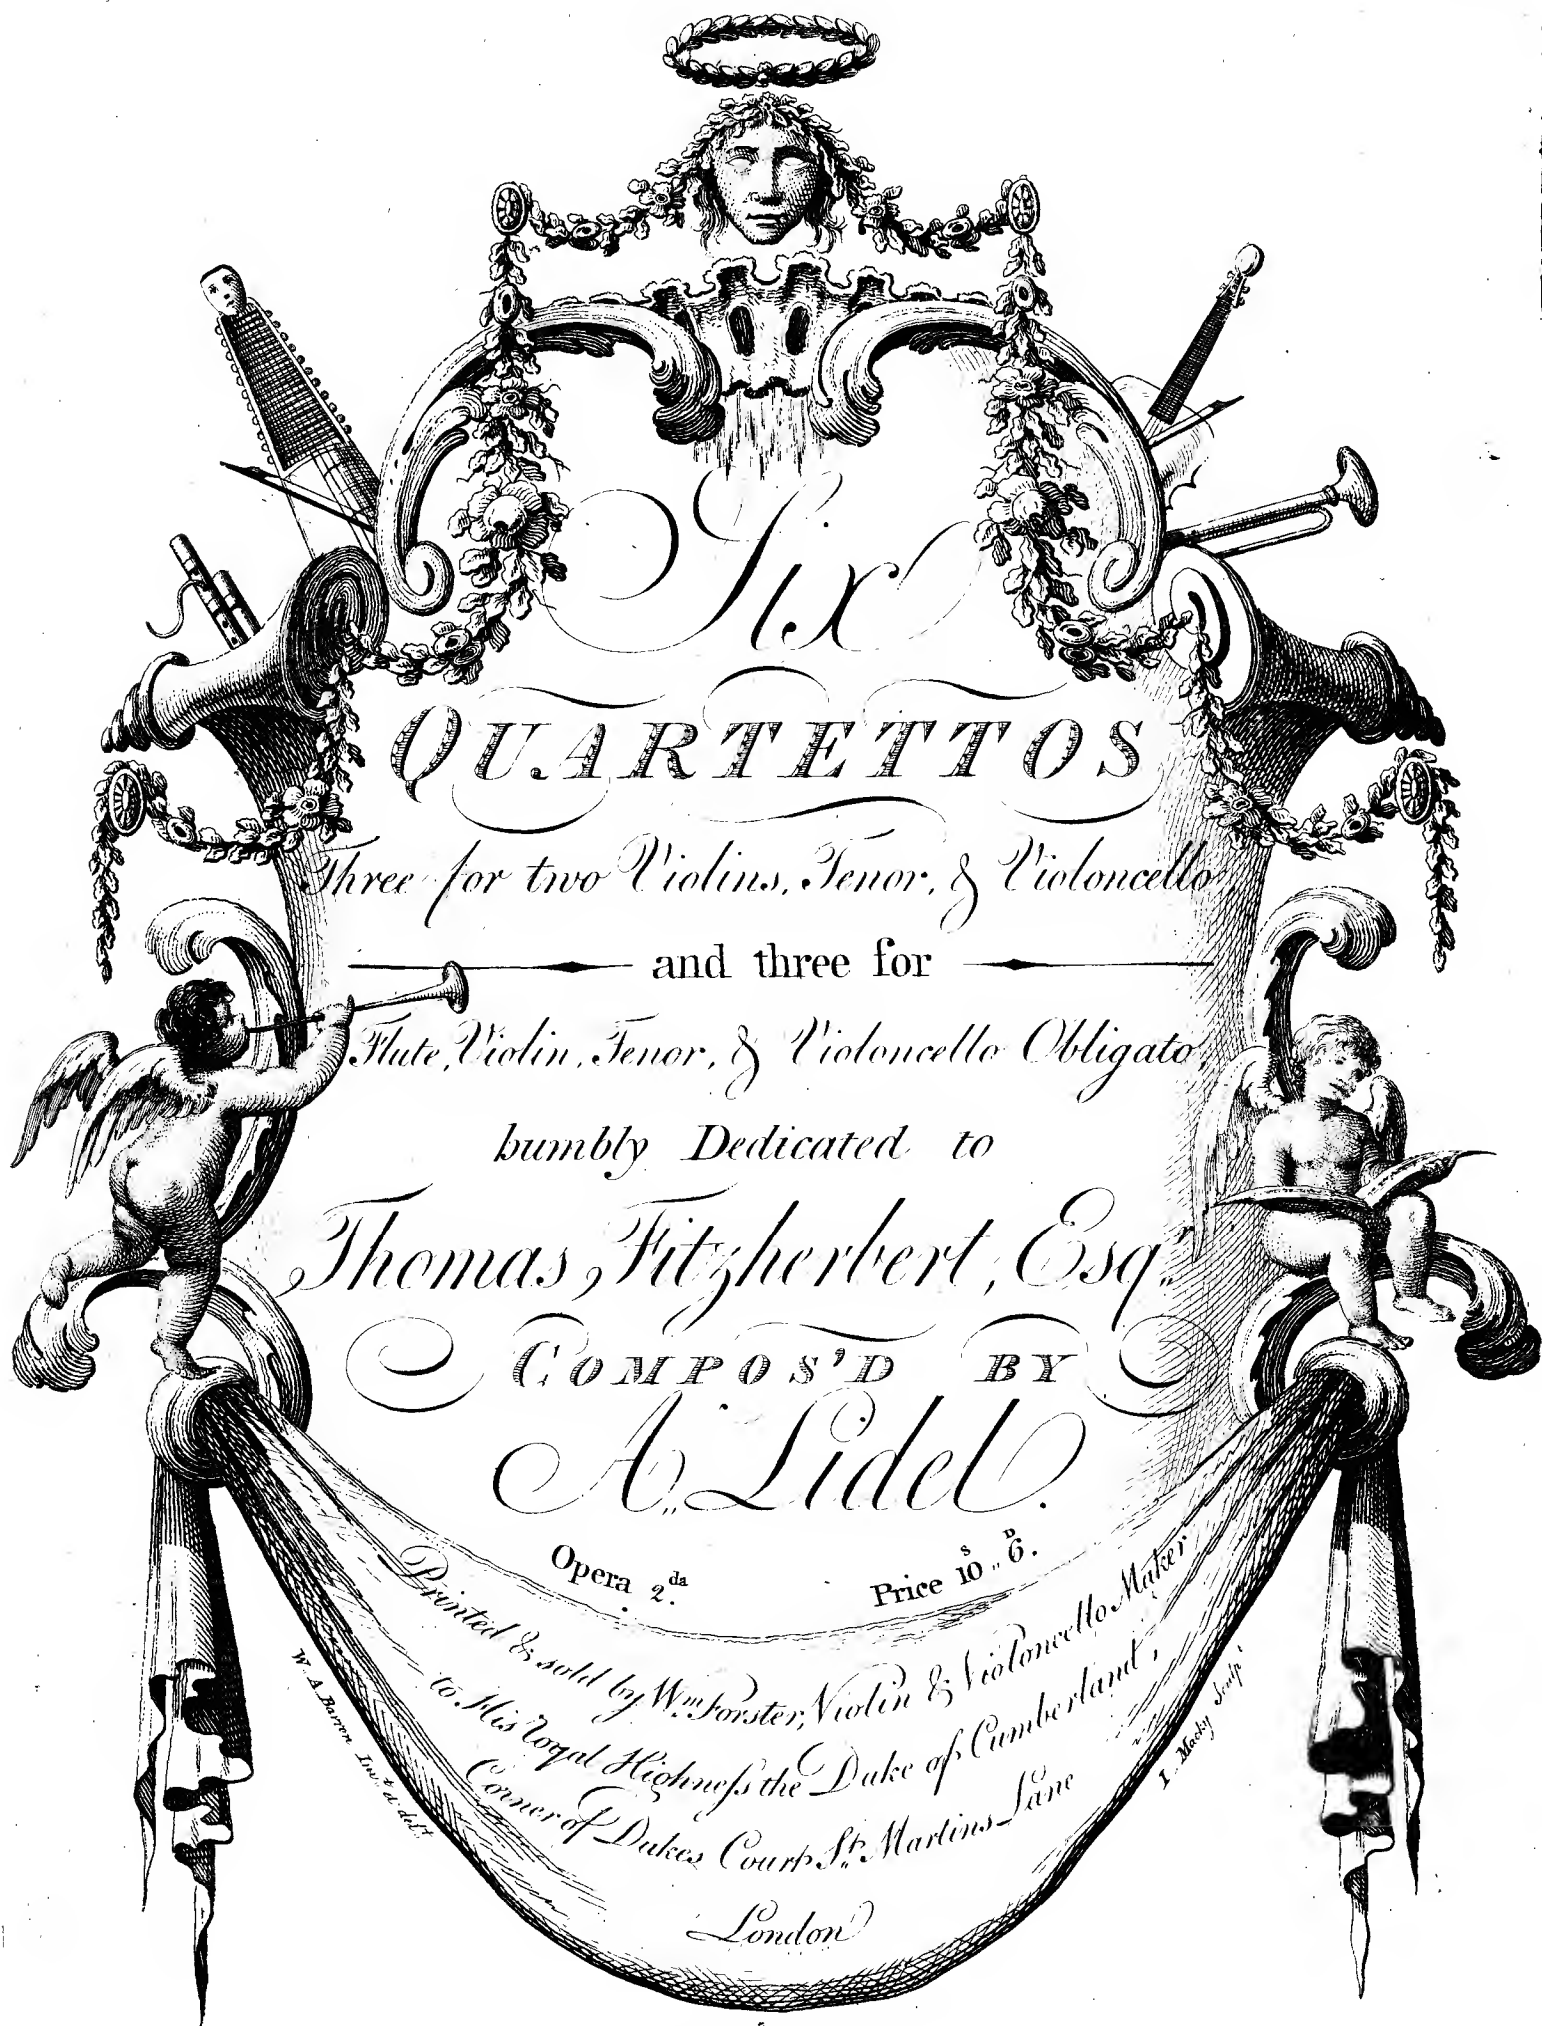 Six
QUARTETTOS
Three for two Violins, Tenor, & Violoncello
and three for
Flute, Violin, Tenor, & Violoncello Obligato,
humbly Dedicated to
Thomas Fitzherbert, Esqr.
COMPOS'D BY
A. Lidel.
Opera 2.da
Price 10s.. 6D.
Printed & sold by Wm. Forster, Violin & Violoncello Maker
to His Royal Highneſs the Duke of Cumberland,
Corner of Dukes Court St. Martins Lane
London
W. A. Barron Invt. & delt.
I. Macky Sculpt